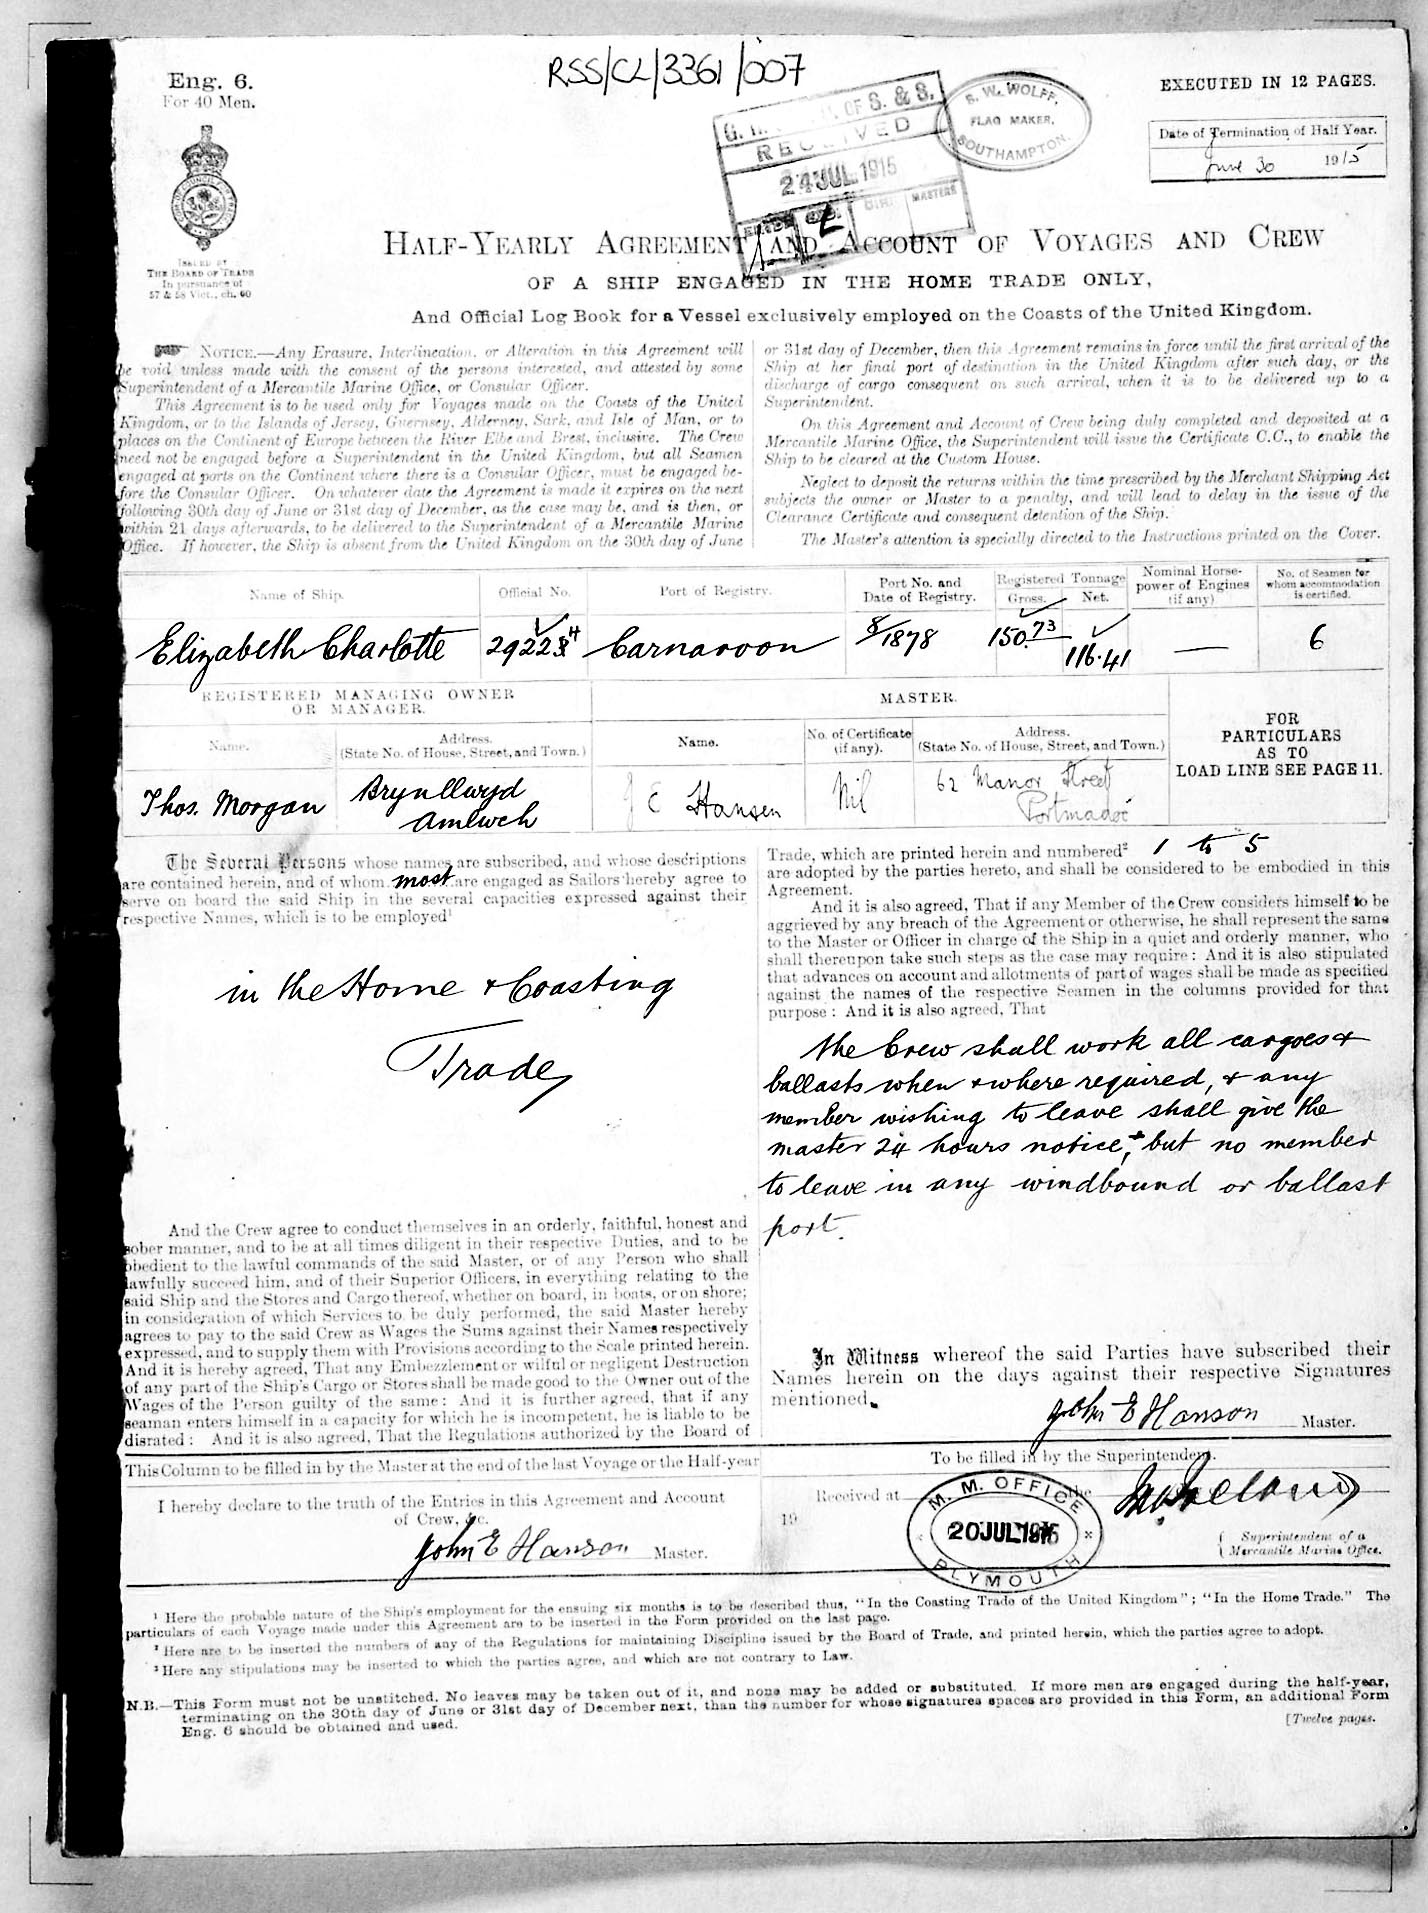 RSS/CL/3361/007
Eng. 6.
For 40 Men.
EXECUTED IN 12 PAGES.
S. W. WOLFF,
FLAG MAKER,
SOUTHAMPTON.
OF S. & S.
RECEIVED
24 JUL 1915
MASTERS
Date of Termination of Half Year.
June 30 1915
ISSUED BY
THE BOARD OF TRADE
In pursuance of
57 & 58 Vict., ch. 60
HALF-YEARLY AGREEMENT AND ACCOUNT OF VOYAGES AND CREW
OF A SHIP ENGAGED IN THE HOME TRADE ONLY,
And Official Log Book for a Vessel exclusively employed on the Coasts of the United Kingdom.
NOTICE.—Any Erasure, Interlineation, or Alteration in this Agreement will
be void unless made with the consent of the persons interested, and attested by some
Superintendent of a Mercantile Marine Office, or Consular Officer.
This Agreement is to be used only for Voyages made on the Coasts of the United
Kingdom, or to the Islands of Jersey, Guernsey, Alderney, Sark, and Isle of Man, or to
places on the Continent of Europe between the River Elbe and Brest, inclusive. The Crew
need not be engaged before a Superintendent in the United Kingdom, but all Seamen
engaged at ports on the Continent where there is a Consular Officer, must be engaged be-
fore the Consular Officer. On whatever date the Agreement is made it expires on the next
following 30th day of June or 31st day of December, as the case may be, and is then, or
within 21 days afterwards, to be delivered to the Superintendent of a Mercantile Marine
Office. If however, the Ship is absent from the United Kingdom on the 30th day of June
or 31st day of December, then this Agreement remains in force until the first arrival of the
Ship at her final port of destination in the United Kingdom after such day, or the
discharge of cargo consequent on such arrival, when it is to be delivered up to a
Superintendent.
On this Agreement and Account of Crew being duly completed and deposited at a
Mercantile Marine Office, the Superintendent will issue the Certificate C.C., to enable the
Ship to be cleared at the Custom House.
Neglect to deposit the returns within the time prescribed by the Merchant Shipping Act
subjects the owner or Master to a penalty, and will lead to delay in the issue of the
Clearance Certificate and consequent detention of the Ship.
The Master's attention is specially directed to the Instructions printed on the Cover.
Name of Ship. Official No. Port of Registry. Port No. and Date of Registry. Registered Tonnage Gross. Net. Nominal Horse-power of Engines (if any) No. of Seamen for whom accommodation is certified.
Elizabeth Charlotte 29224 Carnarvon 8/1878 150.73 116.41 — 6
REGISTERED MANAGING OWNER
OR MANAGER.
MASTER.
Name. Address. (State No. of House, Street, and Town.) Name. No. of Certificate (if any). Address. (State No. of House, Street, and Town.)
FOR
PARTICULARS
AS TO
LOAD LINE SEE PAGE 11.
Thos. Morgan Brynllwyd Amlwch J E Hansen Nil 62 Manor Street Portmadoc
The Several Persons whose names are subscribed, and whose descriptions
are contained herein, and of whom most are engaged as Sailors hereby agree to
serve on board the said Ship in the several capacities expressed against their
respective Names, which is to be employed¹
in the Home & Coasting
Trade
And the Crew agree to conduct themselves in an orderly, faithful, honest and
sober manner, and to be at all times diligent in their respective Duties, and to be
obedient to the lawful commands of the said Master, or of any Person who shall
lawfully succeed him, and of their Superior Officers, in everything relating to the
said Ship and the Stores and Cargo thereof, whether on board, in boats, or on shore;
in consideration of which Services to be duly performed, the said Master hereby
agrees to pay to the said Crew as Wages the Sums against their Names respectively
expressed, and to supply them with Provisions according to the Scale printed herein.
And it is hereby agreed, That any Embezzlement or wilful or negligent Destruction
of any part of the Ship's Cargo or Stores shall be made good to the Owner out of the
Wages of the Person guilty of the same: And it is further agreed, that if any
seaman enters himself in a capacity for which he is incompetent, he is liable to be
disrated: And it is also agreed, That the Regulations authorized by the Board of
Trade, which are printed herein and numbered² 1 to 5
are adopted by the parties hereto, and shall be considered to be embodied in this
Agreement.
And it is also agreed, That if any Member of the Crew considers himself to be
aggrieved by any breach of the Agreement or otherwise, he shall represent the same
to the Master or Officer in charge of the Ship in a quiet and orderly manner, who
shall thereupon take such steps as the case may require: And it is also stipulated
that advances on account and allotments of part of wages shall be made as specified
against the names of the respective Seamen in the columns provided for that
purpose: And it is also agreed, That
the Crew shall work all cargoes &
ballasts when & where required, & any
member wishing to leave shall give the
master 24 hours notice, & but no member
to leave in any windbound or ballast
port.
In Witness whereof the said Parties have subscribed their
Names herein on the days against their respective Signatures
mentioned.
John E Hanson Master.
This Column to be filled in by the Master at the end of the last Voyage or the Half-year
I hereby declare to the truth of the Entries in this Agreement and Account
of Crew, &c.
John E Hanson Master.
To be filled in by the Superintendent.
Received at the
19
M. M. OFFICE
20 JUL 1915
PLYMOUTH
Superintendent of a
Mercantile Marine Office.
¹ Here the probable nature of the Ship's employment for the ensuing six months is to be described thus, "In the Coasting Trade of the United Kingdom"; "In the Home Trade." The
particulars of each Voyage made under this Agreement are to be inserted in the Form provided on the last page.
² Here are to be inserted the numbers of any of the Regulations for maintaining Discipline issued by the Board of Trade, and printed herein, which the parties agree to adopt.
³ Here any stipulations may be inserted to which the parties agree, and which are not contrary to Law.
N.B.—This Form must not be unstitched. No leaves may be taken out of it, and none may be added or substituted. If more men are engaged during the half-year,
terminating on the 30th day of June or 31st day of December next, than the number for whose signatures spaces are provided in this Form, an additional Form
Eng. 6 should be obtained and used.
[Twelve pages.